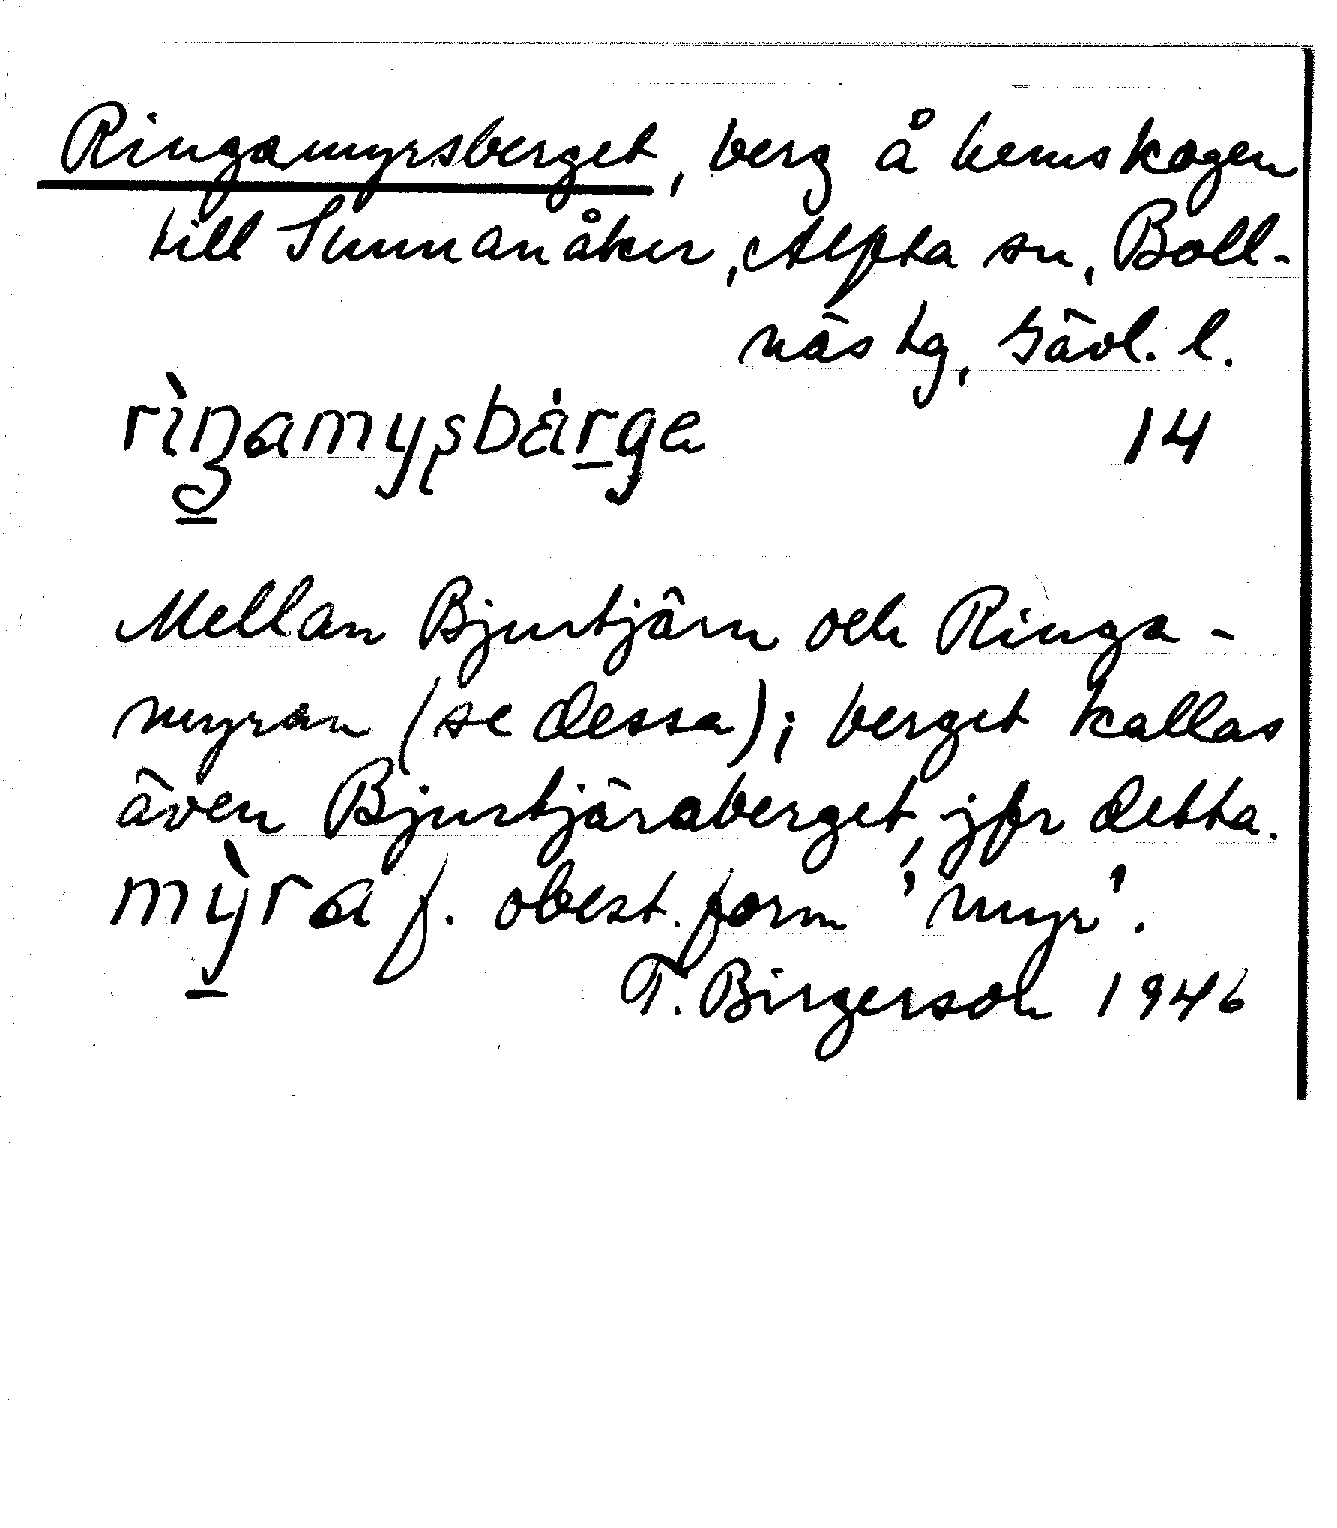 Ringamyrsberget, berg å hemskogen
till Sunnanåker, Alfta sn, Boll-
näs tg, Gävl. l.
rìŋamyʂbårge 14
Mellan Bjurtjärn och Ringa-
myran (se dessa); berget kallas
även Bjurtjäraberget, jfr detta.
mỳra f. obest. form 'myr'.
T. Birgerson 1946